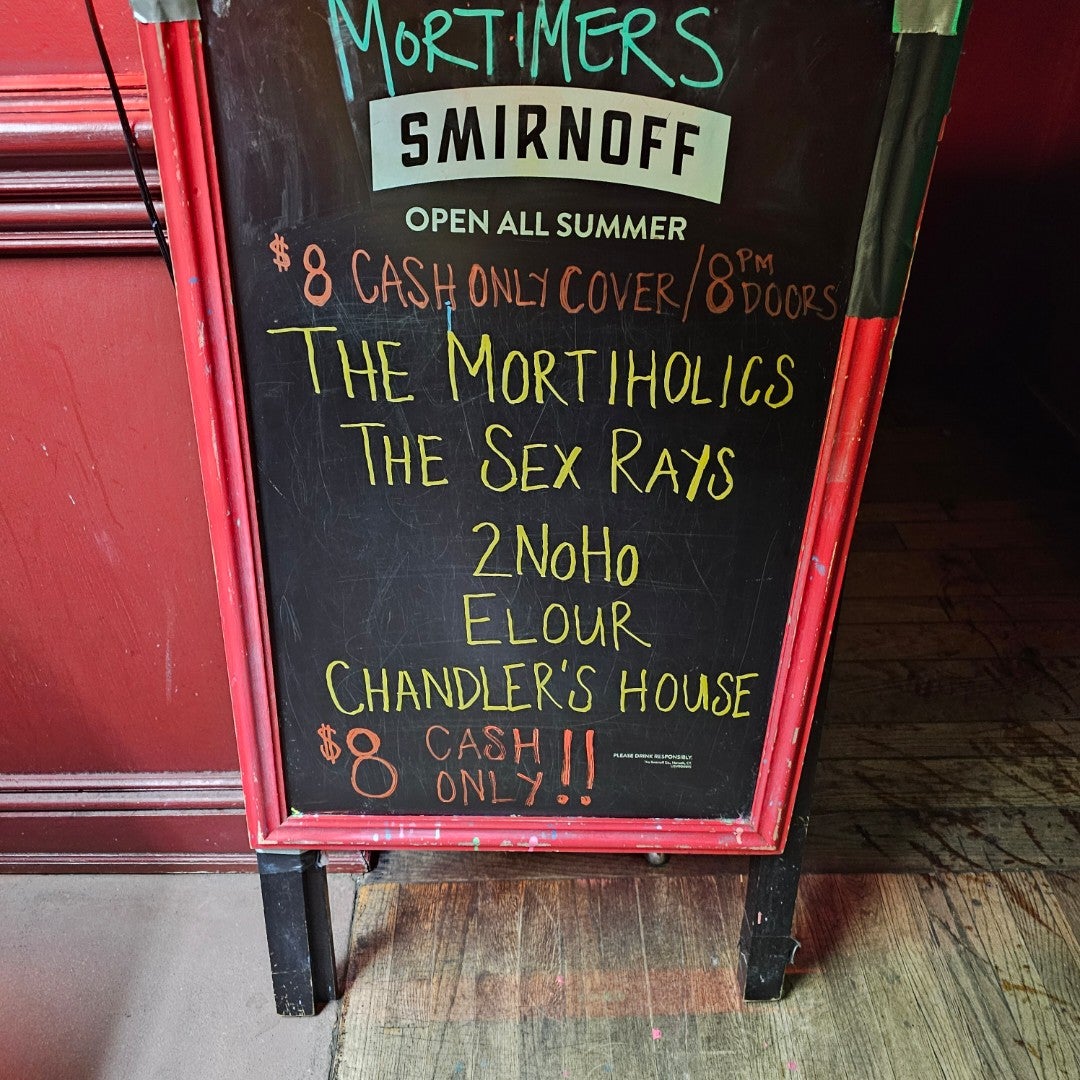 MORTIMERS
SMIRNOFF
OPEN ALL SUMMER
$8 CASH ONLY COVER/8PM DOORS
THE MORTIHOLICS
THE SEX RAYS
2NOHO
ELOUR
CHANDLER'S HOUSE
$8 CASH ONLY!!
PLEASE DRINK RESPONSIBLY.